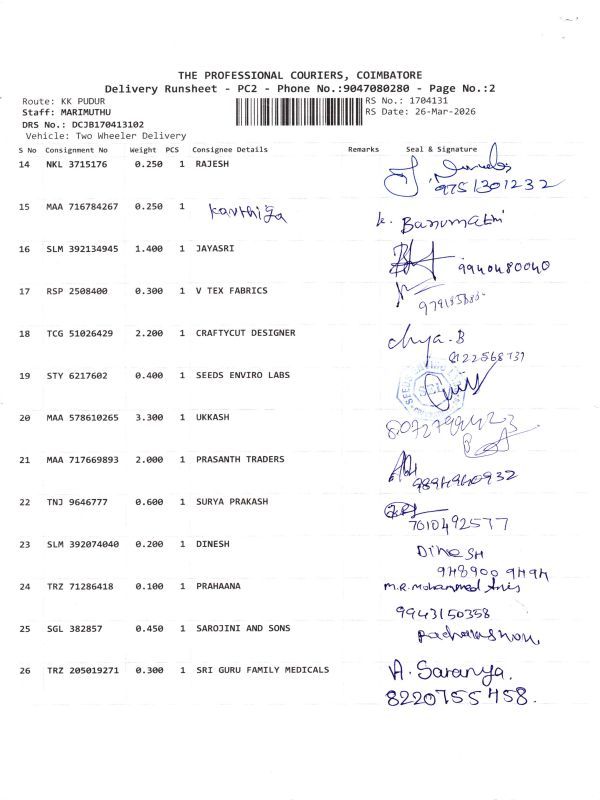 THE PROFESSIONAL COURIERS, COIMBATORE
Delivery Runsheet - PC2 - Phone No.:9047080280 - Page No.:2
Route: KK PUDUR RS No.: 1704131
Staff: MARIMUTHU RS Date: 26-Mar-2026
DRS No.: DCJB170413102
Vehicle: Two Wheeler Delivery
S No Consignment No Weight PCS Consignee Details Remarks Seal & Signature
14 NKL 3715176 0.250 1 RAJESH
9751301232
15 MAA 716784267 0.250 1 Karthiga K. Banumathi
16 SLM 392134945 1.400 1 JAYASRI 9940480040
17 RSP 2508400 0.300 1 V TEX FABRICS
18 TCG 51026429 2.200 1 CRAFTYCUT DESIGNER
19 STY 6217602 0.400 1 SEEDS ENVIRO LABS
20 MAA 578610265 3.300 1 UKKASH
21 MAA 717669893 2.000 1 PRASANTH TRADERS
9894940932
22 TNJ 9646777 0.600 1 SURYA PRAKASH
7010492577
23 SLM 392074040 0.200 1 DINESH DINESH
948900 9494
24 TRZ 71286418 0.100 1 PRAHAANA M.R. Mohammed Anis
9943150358
25 SGL 382857 0.450 1 SAROJINI AND SONS
26 TRZ 205019271 0.300 1 SRI GURU FAMILY MEDICALS A. Saranya.
8220755458.